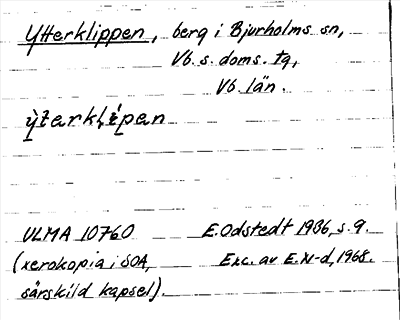 Ytterklippen, berg i Bjurholms sn,
Vb. s. doms. tg,
Vb. län.
ULMA 10760 E. Odstedt 1936, s. 9.
(xerokopia i SOA, Exc. av E. N-d, 1968.
särskild kapsel).